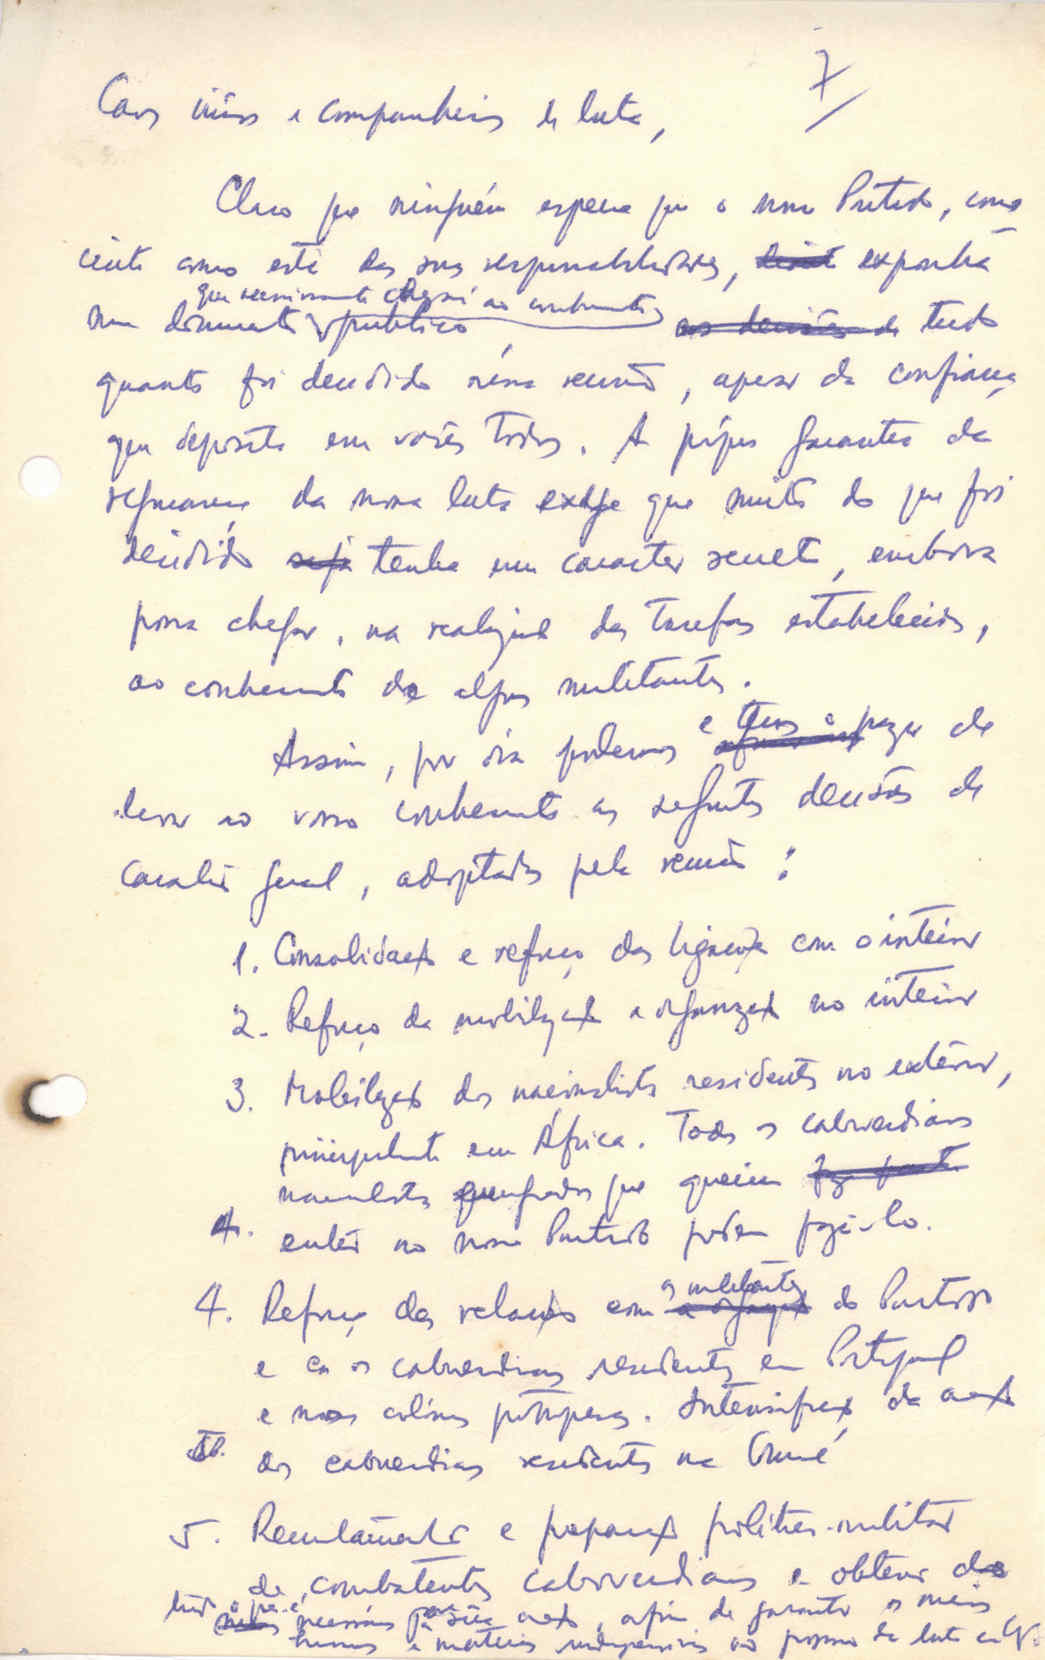 7
Caros irmãos e companheiros de luta,
Claro que ninguém espera que o nosso Partido, cons
ciente como está das suas responsabilidades, exponha
que necessariamente chegará ao conhecimento
num documento público, as decisões de tudo
quanto foi decidido nessa reunião, apesar da confiança
que deposita em vocês todos. A própria garantia da
segurança da nossa luta exige que muito do que foi
decidido seja tenha um caracter secreto, embora
possa chegar, na realização das tarefas estabelecidas,
ao conhecimento de alguns militantes.
e temos o prazer de
Assim, por ora podemos
levar ao vosso conhecimento as seguintes decisões de
caracter geral, adoptadas pela reunião:
1. Consolidação e reforço das ligações com o interior
2. Reforço da mobilização e organização no interior
3. Mobilização dos nacionalistas residentes no exterior,
principalmente em África. Todos os caboverdianos
nacionalistas que queiram faz parte
4. entrar no nosso Partido podem fazê-lo.
os militantes
4. Reforço das relações com do Partido
e com os caboverdianos residentes em Portugal
e nas colónias portuguesas. Intensificação da acção
dos caboverdianos residentes na Guiné
5. Recrutamento e preparação político-militar
de combatentes caboverdianos e obter
necessário para acção, afim de garantir os meios
humanos e materiais indispensáveis ao progresso da luta em